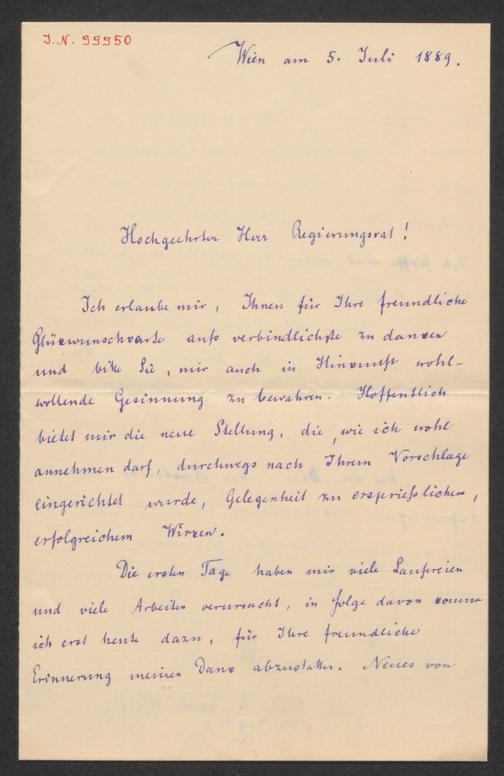 J.N. 99950
Wien am 5. Juli 1889.
Hochgeehrter Herr Regierungsrat!
Ich erlaube mir, Ihnen für Ihre freundliche
Glückwunschkarte aufs verbindlichste zu danken
und bitte Sie, mir auch in Hinkunft wohl-
wollende Gesinnung zu bewahren. Hoffentlich
bietet mir die neue Stellung, die, wie ich wohl
annehmen darf, durchwegs nach Ihrem Vorschlage
eingerichtet wurde, Gelegenheit zu ersprießlichem,
erfolgreichem Wirken.
Die ersten Tage haben mir viele Laufereien
und viele Arbeiten verursacht, in folge davon komme
ich erst heute dazu, für Ihre freundliche
Erinnerung meinen Dank abzustatten. Neues von